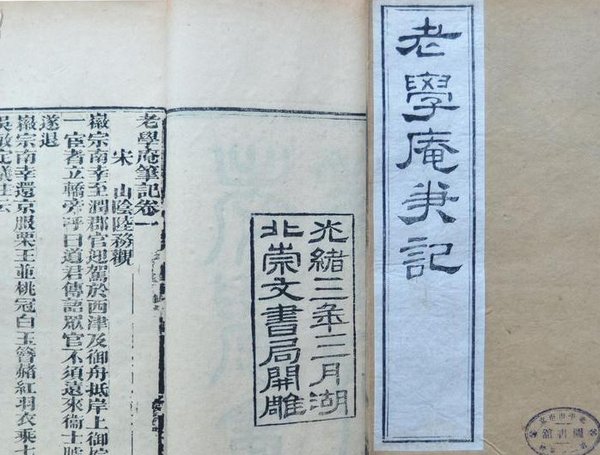 老學庵筆記
光緒三年三月湖
北崇文書局開雕
老學庵筆記卷一
宋 山陰陸務觀
徽宗南幸至潤郡官迎駕於西津及御舟抵岸上御
一宦者立轎旁呼曰道君傳語眾官不須遠來衞士
遂退
徽宗南幸還京服栗玉並桃冠白玉簪赭紅羽衣乘七
圖書館